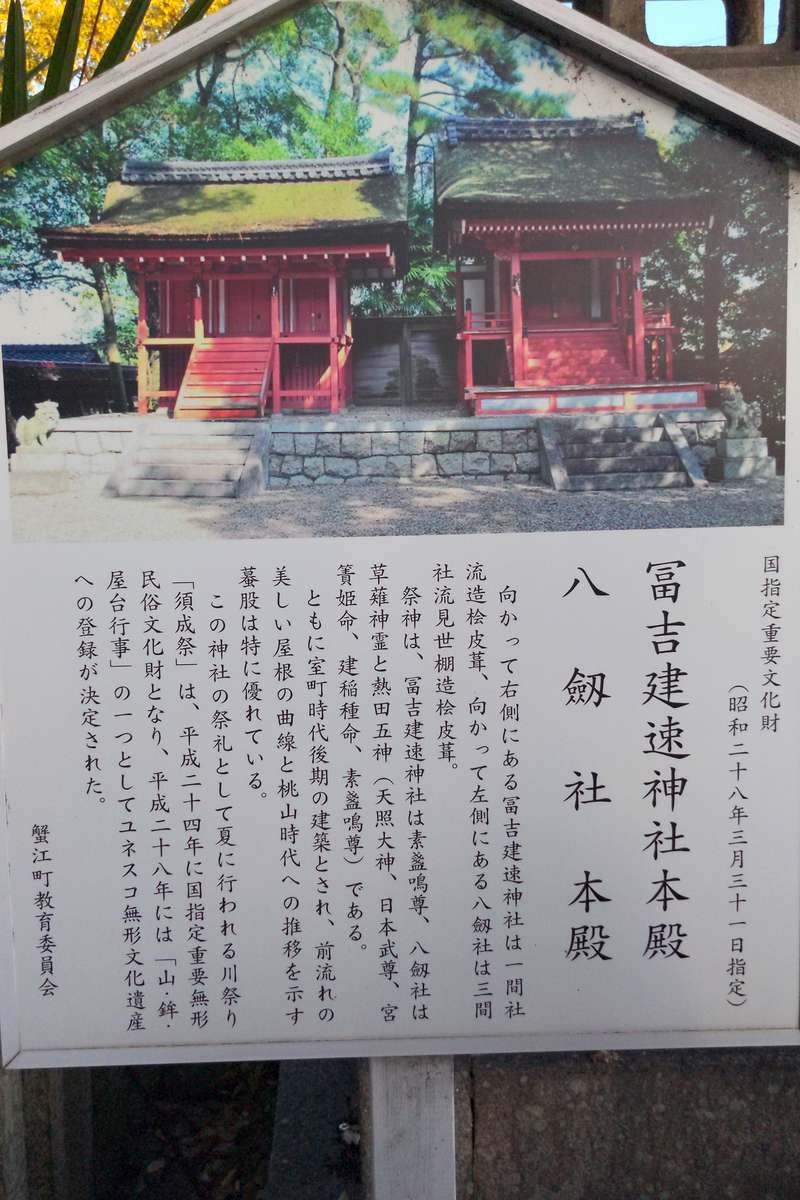 国指定重要文化財
(昭和二十八年三月三十一日指定)
冨吉建速神社本殿
八劔社本殿
向かって右側にある冨吉建速神社は一間社
流造桧皮葺、向かって左側にある八劔社は三間
社流見世棚造桧皮葺。
祭神は、冨吉建速神社は素盞鳴尊、八劔社は
草薙神霊と熱田五神(天照大神、日本武尊、宮
簀姫命、建稲種命、素盞鳴尊)である。
ともに室町時代後期の建築とされ、前流れの
美しい屋根の曲線と桃山時代への推移を示す
蟇股は特に優れている。
この神社の祭礼として夏に行われる川祭り
「須成祭」は、平成二十四年に国指定重要無形
民俗文化財となり、平成二十八年には「山・鉾・
屋台行事」の一つとしてユネスコ無形文化遺産
への登録が決定された。
蟹江町教育委員会